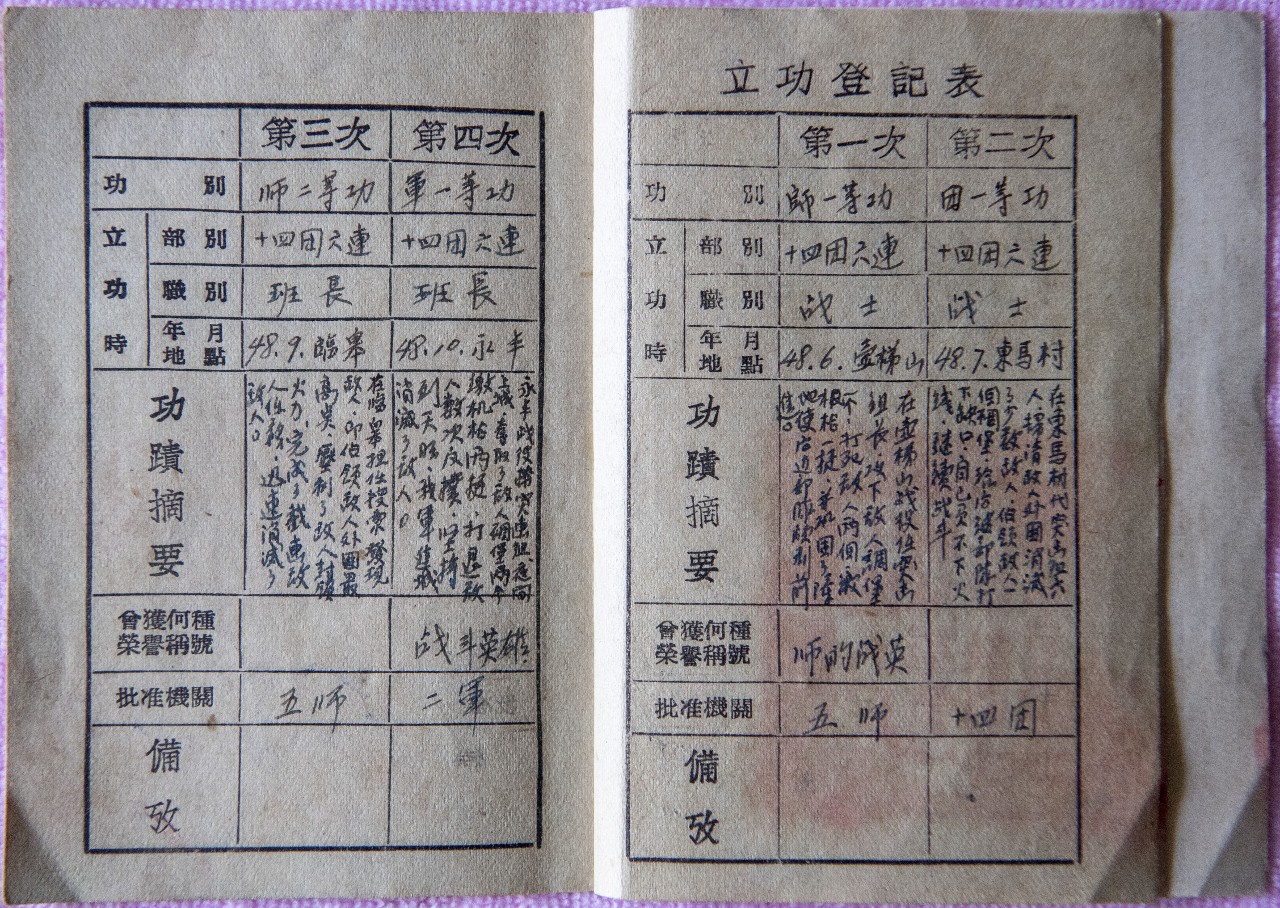 立功登記表
第一次 第二次
功別 師一等功 团一等功
立功時
部別 十四团六連 十四团六連
職別 战士 战士
年月
地點 48.6.壶梯山 48.7.東馬村
功蹟摘要
在壶梯山战役任突击
组长,攻下敌人碉堡
个,打死敌人两個,缴
机枪一挺,并巩固了陣
地使后边部隊顺利前
進。
在東馬村代突击组六
人,扫清敌人外圍消滅
了少数敌人,佔领敌人一
個碉堡,给后续部隊打
下缺口,自己負不下火
线,继續战斗
曾獲何種
榮譽稱號 师的战英
批准機關 五师 十四团
備攷
第三次 第四次
功別 师二等功 軍一等功
立功時
部別 十四团六連 十四团六連
職別 班長 班長
年月
地點 48.9.臨皋 48.10.永丰
功蹟摘要
在臨皋担任搜索,發現
敌人,即佔领敌人外圍最
高点,壓制了敌人封锁
火力,完成了截击敌
人任務,迅速消滅了
敌人。
永丰战役带突击组,夜间
上城,夺取了敌人碉堡两个
缴机枪两挺,打退敌
人数次反撲,坚持
到天明,我軍進城
消滅了敌人。
曾獲何種
榮譽稱號 战斗英雄
批准機關 五师 二軍
備攷